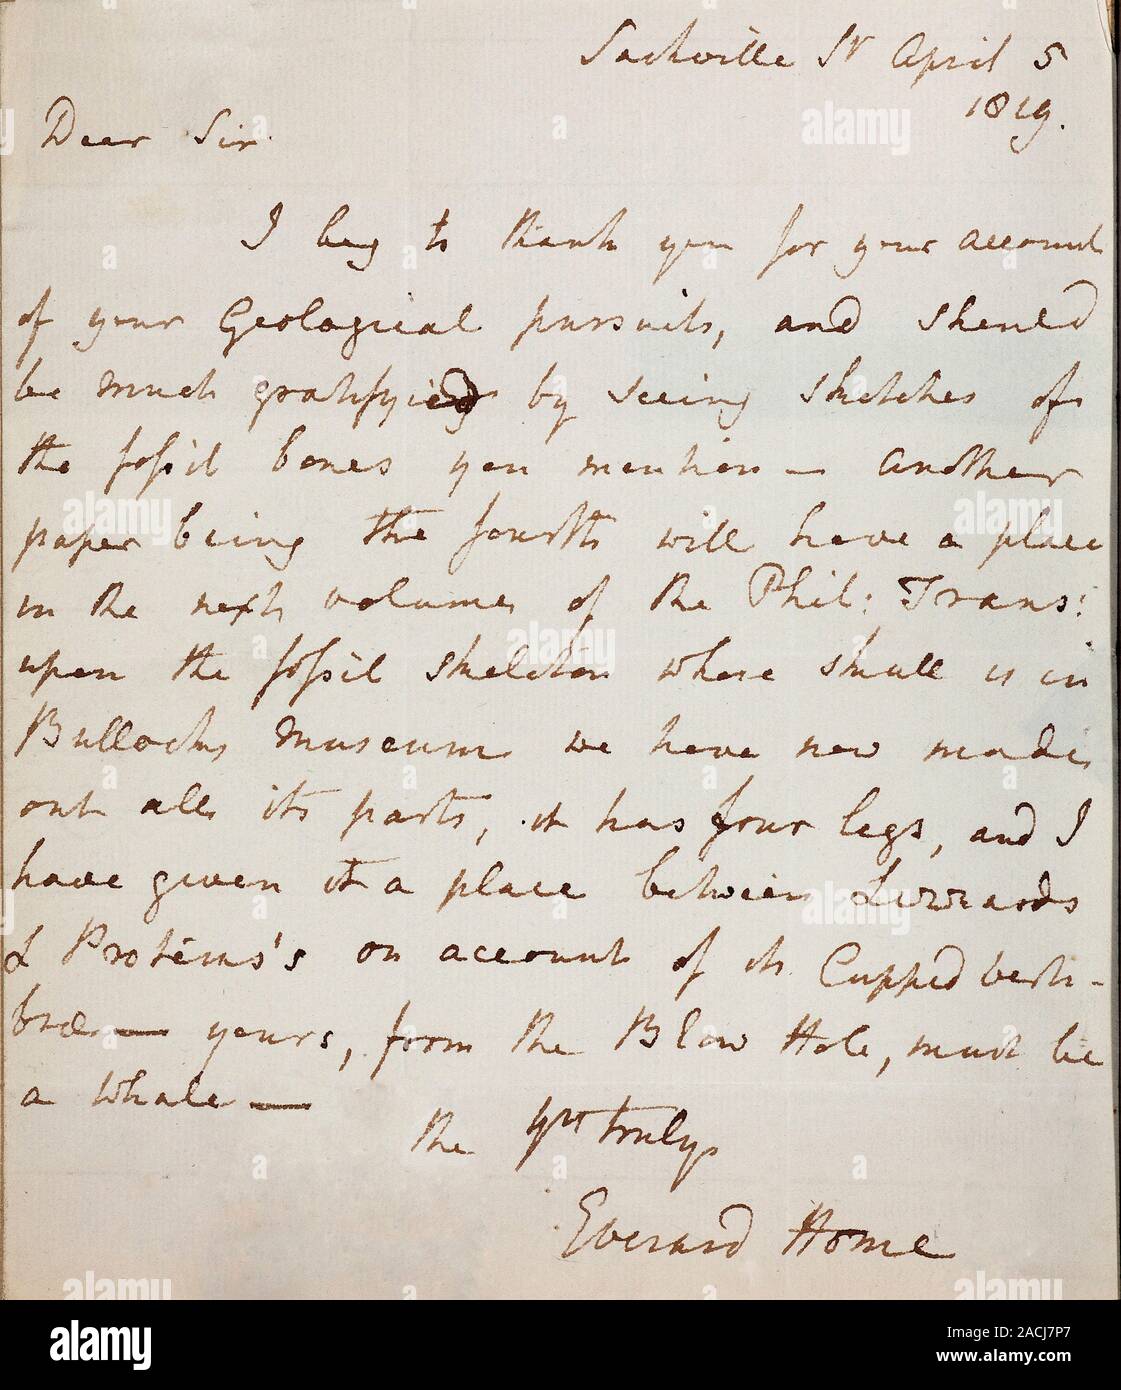 Sackville St April 5
1819.
Dear Sir
I beg to thank you for your account
of your Geological pursuits, and should
be much gratifyied by seeing sketches of
the fossil bones you mention — another
paper being the fourth will have a place
in the next volume of the Phil: Trans:
upon the fossil skeleton whose skull is in
Bullocks museum we have now made
out all its parts, it has four legs, and I
have given it a place between Lizzards
& Proteus's on account of its Cupped verte-
bræ — yours, from the Blow Hole, must be
a whale —
Yrs truly
Everard Home
alamy
Image ID: 2ACJ7P7
www.alamy.com